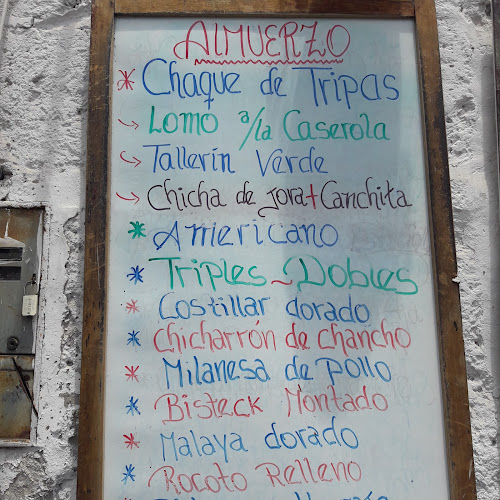 ALMUERZO
* Chaque de Tripas
→ Lomo a/la Caserola
→ Tallerín Verde
→ Chicha de Jora + Canchita
* Americano
* Triples ~ Dobles
* Costillar dorado
* Chicharrón de chancho
* Milanesa de pollo
* Bisteck Montado
* Malaya dorado
* Rocoto Relleno